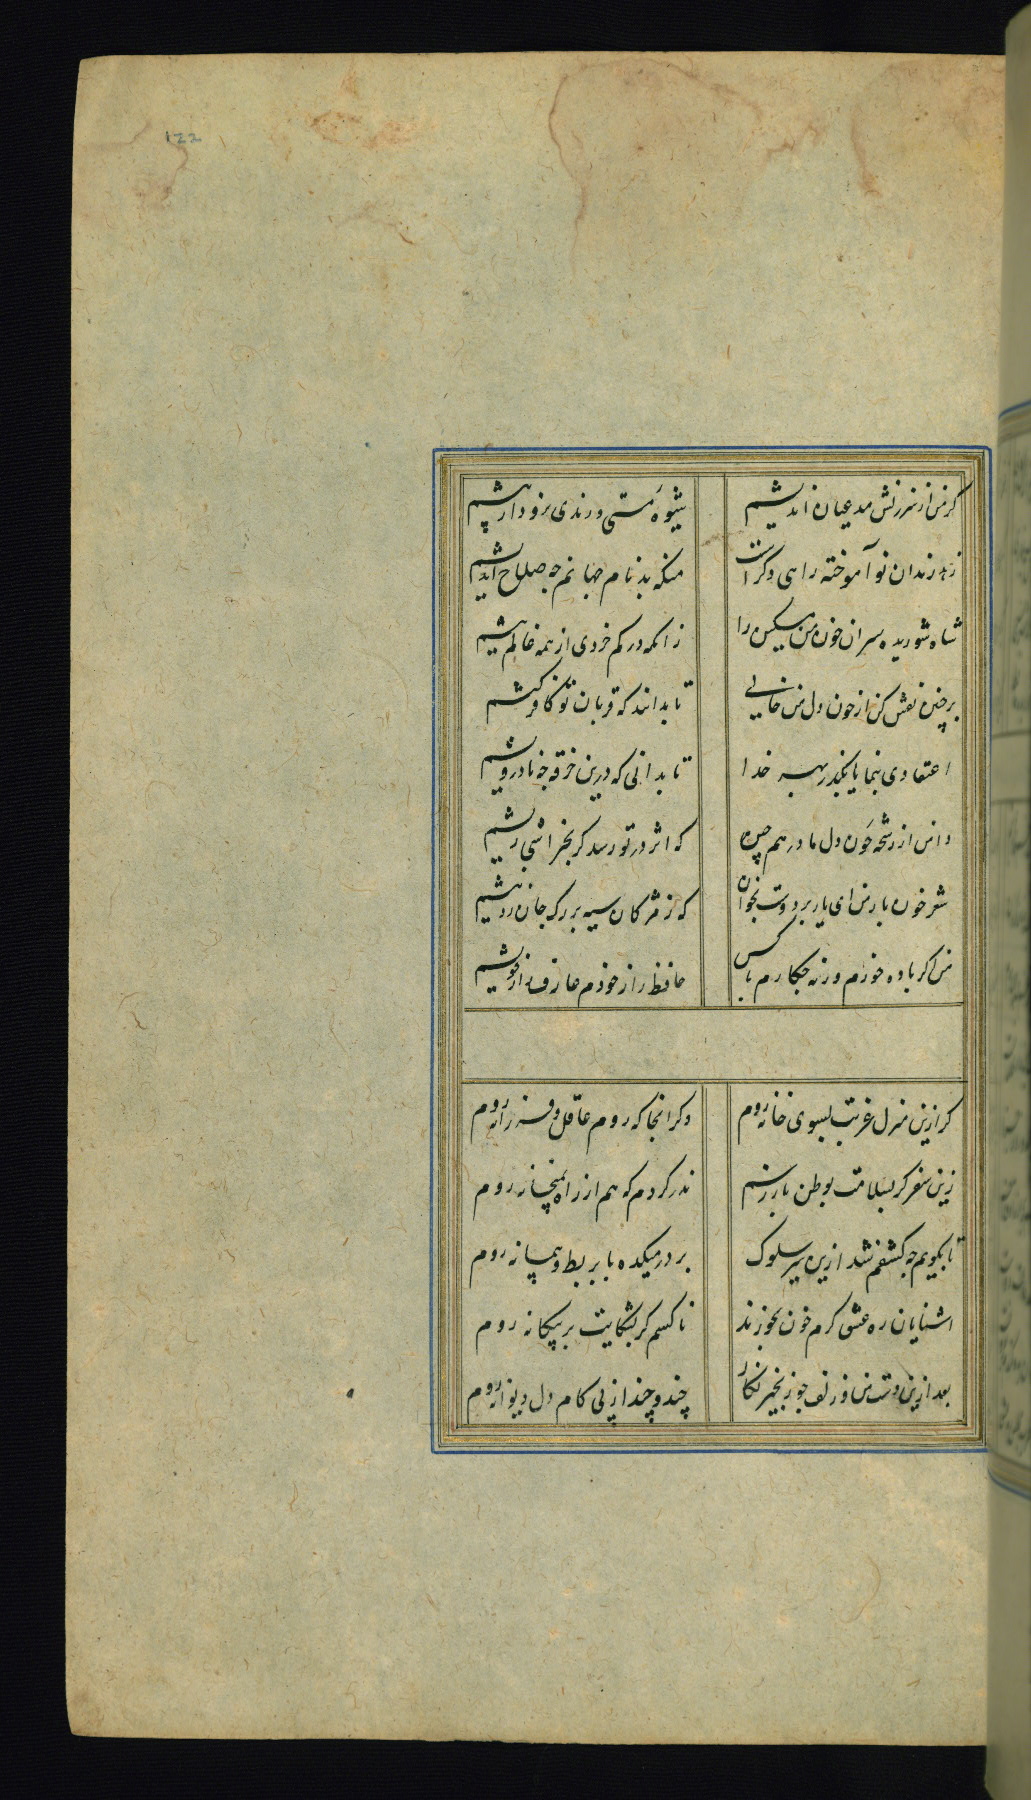 ۱۲۲
کر من از سرزنش مدعیان اندیشم شیوه مستی و رندی نرود از پیشم
زهد رندان نو آموخته راهی دکر است منکه بدنام جهانم چه صلاح اندیشم
شاه شوریده سران خوان من مسکین را زانکه در کم خردی از همه عالم پیشم
بر جبین نقش کن از خون دل من خالی تا بدانند که قربان تو کافر کیشم
اعتقادی بنما بکذر بهر خدا تا بدانی که درین خرقه چه نادرویشم
دامن از رشحه خون دل ما در هم چین که اثر در تو رسد کر بخراشی ریشم
شعر خون بار من ای یار بر دوست بخوان که ز مژکان سیه بر رک جان زد نیشم
من کر باده خورم ورنه چکارم با کس حافظ راز خودم عارف خویشم
کر ازین منزل غربت بسوی خانه روم دکر انجا که روم عاقل و فرزانه روم
زین سفر کر بسلامت بوطن باز رسم نذر کردم که هم از راه بمیخانه روم
تا بکویم چه کشفم شد ازین سیر سلوک بر در میکده با بربط و پیمانه روم
اشنایان ره عشق کرم خون بخورند ناکسم کر بشکایت بر بیکانه روم
بعد ازین دست من و زلف چو زنجیر نکار چند و چند از پی کام دل دیوانه روم